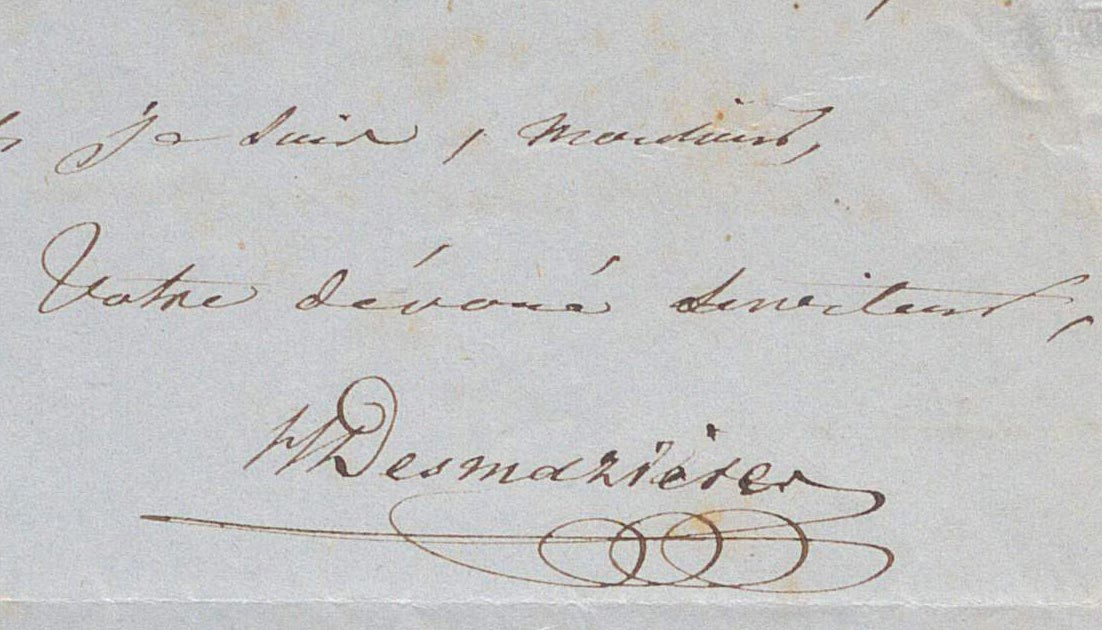 je suis, monsieur,
Votre dévoué serviteur,
Desmazières